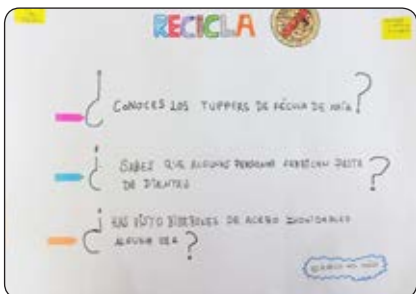 RECICLA
¿CONOCES LOS TUPPERS DE FÉCULA DE MAÍZ?
¿SABES QUE ALGUNAS PERSONAS FABRICAN PASTA
DE DIENTES?
¿HAS VISTO BIBERONES DE ACERO INOXIDABLE
ALGUNA VEZ?